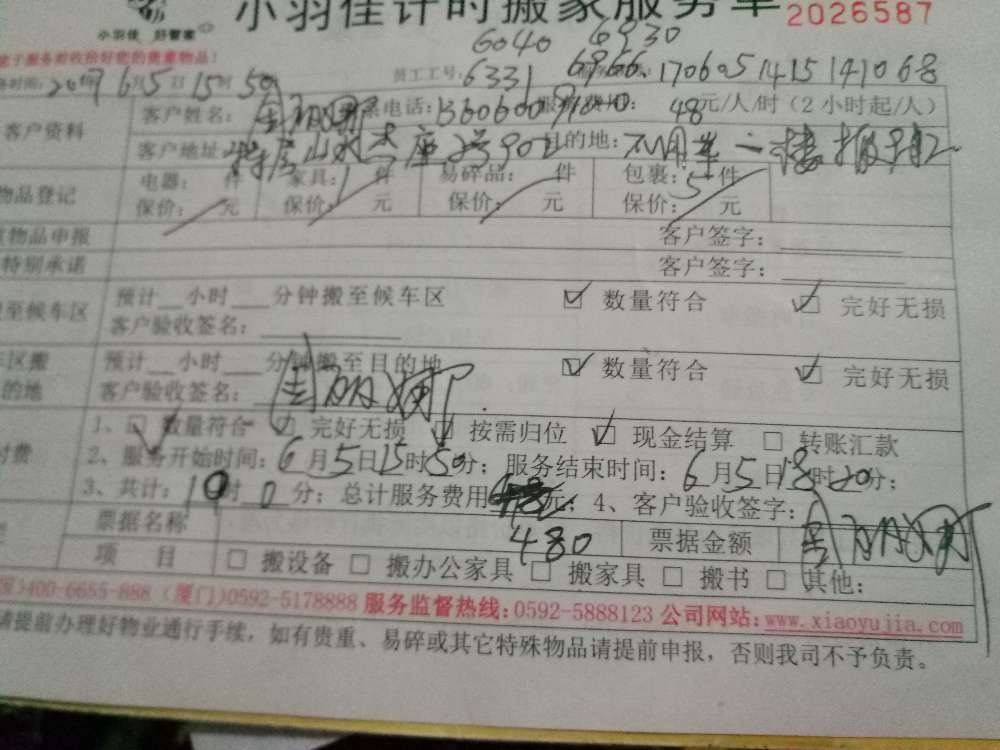 小羽佳计时搬家服务单 2026587
小羽佳 好管家
6040 6930
员工工号: 6331 6966 170605141514 1068
务时间: 2017年6月5日15时50
客户资料 客户姓名: 电话: 48元/人/时（2小时起/人）
客户地址: 目的地:
物品登记 电器: 件 家具: 1件 易碎品: 件 包裹: 5件
保价: 元 保价: 元 保价: 元 保价: 元
物品申报 客户签字:
特别承诺 客户签字:
至候车区 预计 小时 分钟搬至候车区 ☑ 数量符合 ☑ 完好无损
客户验收签名:
区搬 预计 小时 分钟搬至目的地 ☑ 数量符合 ☑ 完好无损
的地 客户验收签名:
付费 1、☑ 数量符合 ☑ 完好无损 ☑ 按需归位 ☑ 现金结算 □ 转账汇款
2、服务开始时间: 6月5日15时50分; 服务结束时间: 6月5日18时20分;
3、共计: 10时0分; 总计服务费用 元; 4、客户验收签字:
票据名称 480 票据金额
项 目 □ 搬设备 □ 搬办公家具 □ 搬家具 □ 搬书 □ 其他:
)400-6655-888 (厦门)0592-5178888 服务监督热线: 0592-5888123 公司网站: www.xiaoyujia.com
请提前办理好物业通行手续，如有贵重、易碎或其它特殊物品请提前申报，否则我司不予负责。